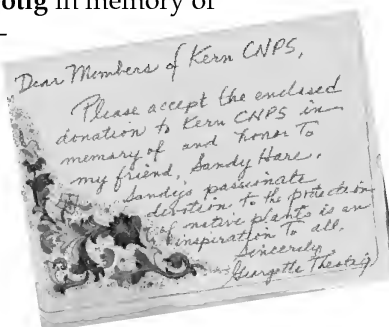 otig in memory of
Dear Members of Kern CNPS,
Please accept the enclosed
donation to Kern CNPS in
memory of and honor To
my friend, Sandy Hare.
Sandy's passionate
devotion to the protection
of native plants is an
inspiration To all.
Sincerely,
Georgette Theotig